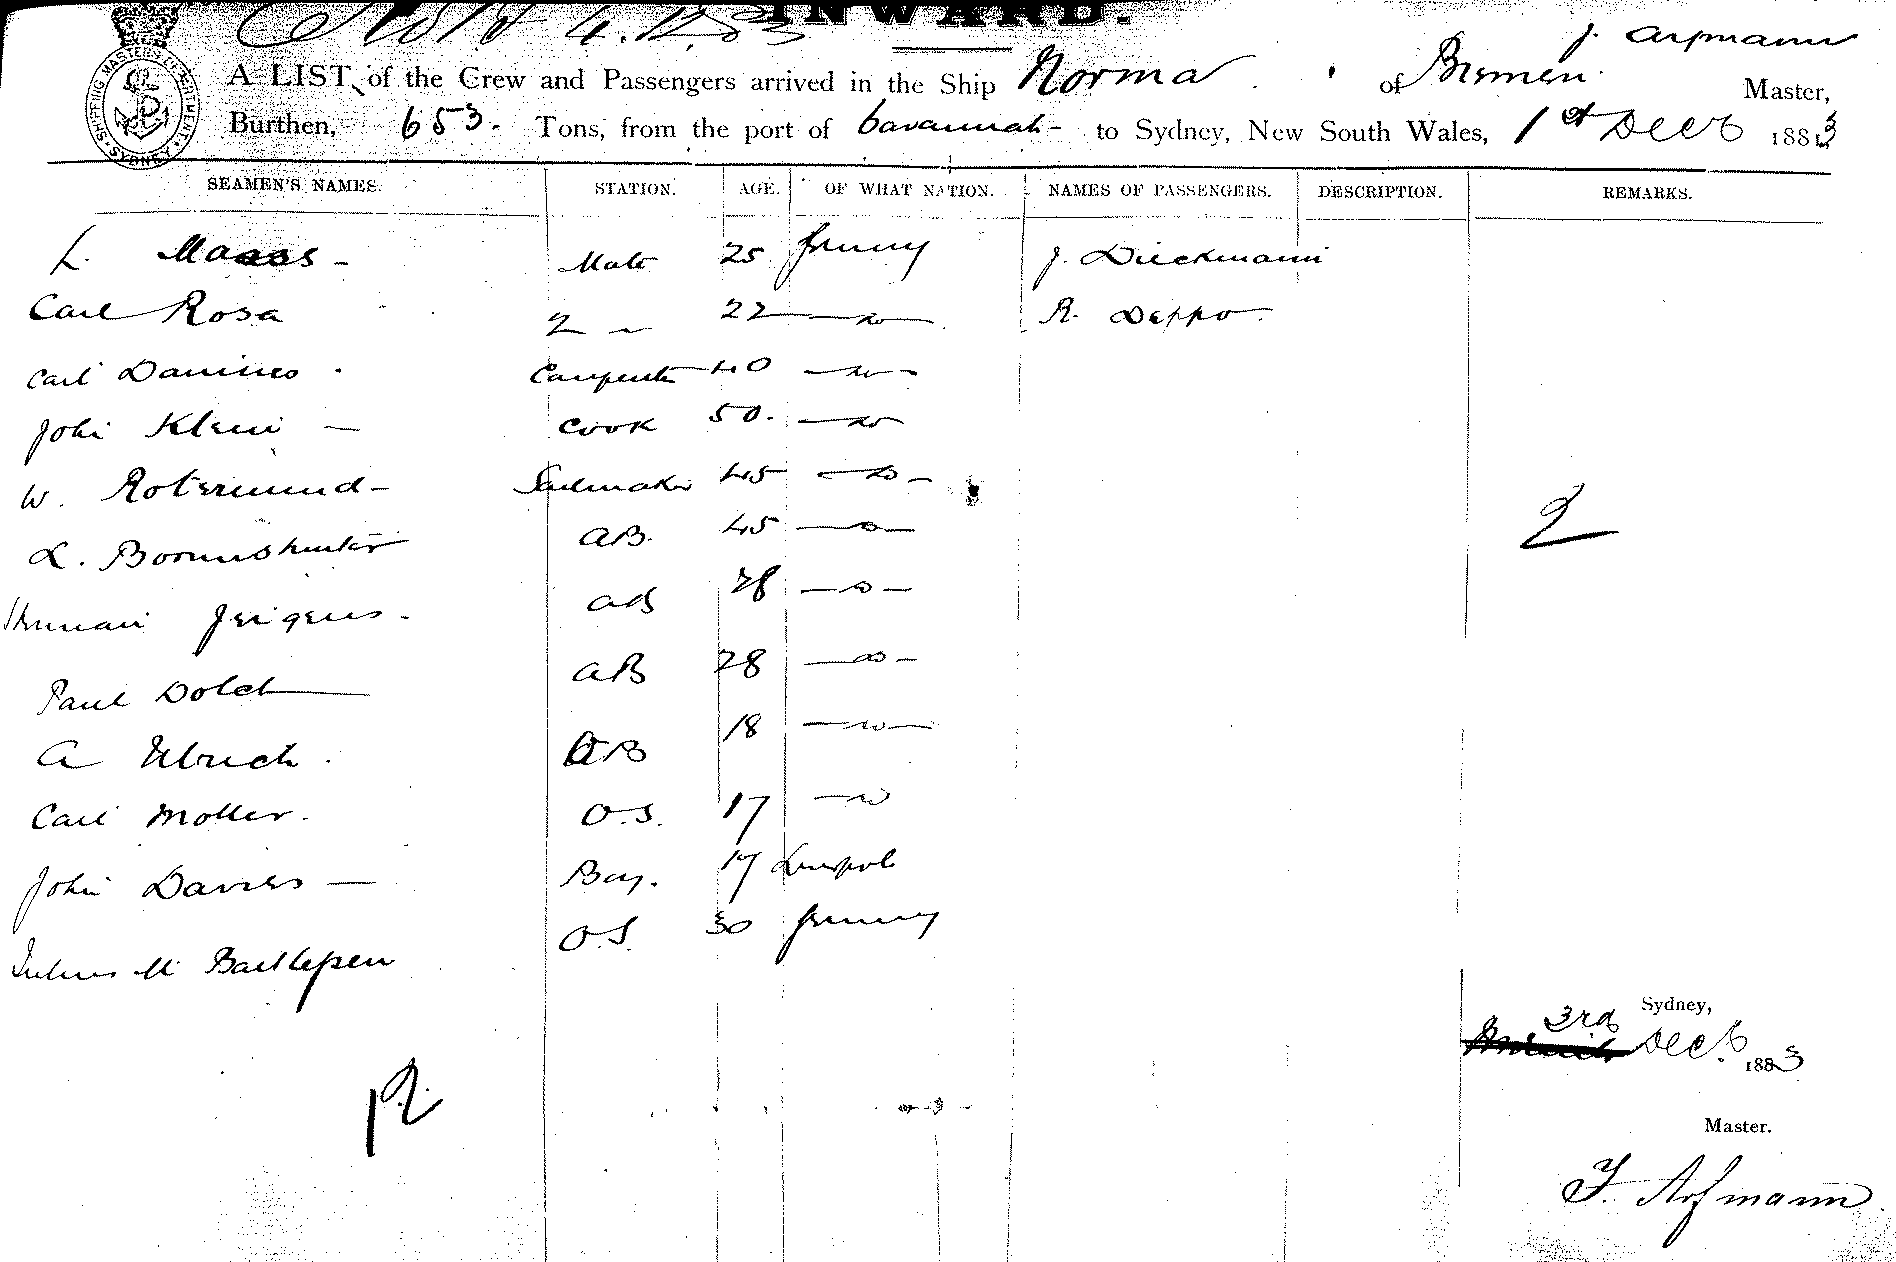 INWARD.
A LIST of the Crew and Passengers arrived in the Ship Norma of Bremen. J. Arpmann Master,
Burthen, 653. Tons, from the port of Savannah - to Sydney, New South Wales, 1st Decb 1883
SHIPPING MASTER'S DEPARTMENT SYDNEY
SEAMEN'S NAMES. STATION. AGE. OF WHAT NATION. NAMES OF PASSENGERS. DESCRIPTION. REMARKS.
L. Maass - Mate 25 Germy J. Dieckmann
Carl Rosa 2 " 22 — do — R. Deppo
Carl Daniies Carpenter 40 — do —
John Klein — Cook 50. — do
W. Rotermund - Sailmaker 45 — do —
AB. 45 — do —
Herman Jurgens. AB 28 — do —
Paul Dolch AB 28 — do —
A Ulrich. AB 18 — do —
Carl Moller. O.S. 17 — do
John Davies — Boy. 17 Liverpool
Julius M O.S. 30 Germy
2
12
Sydney,
3rd Decb 1883
Master.
F. Arfmann